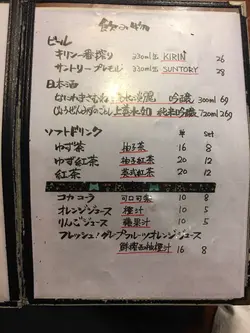 ビール
キリン一番搾り 330ml缶 KIRIN 26
サントリープレモル 330ml缶 SUNTORY 28
日本酒
吟醸 300ml 69
上善如水 純米吟釀 720ml 269
ソフトドリンク 単 set
ゆず茶 柚子茶 16 8
ゆず紅茶 柚子紅茶 20 12
紅茶 英式紅茶 20 12
コカコーラ 可口可楽 10 8
オレンジジュース 橙汁 10 5
りんごジュース 蘋果汁 10 5
フレッシュ!グレープフルーツオレンジジュース
鮮搾西柚橙汁 16 8